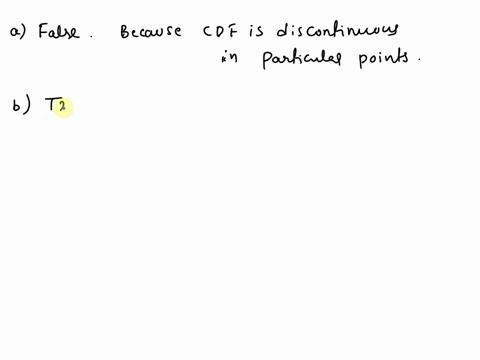 a) False. Because CDF is discontinuous
in particular points.
b) T